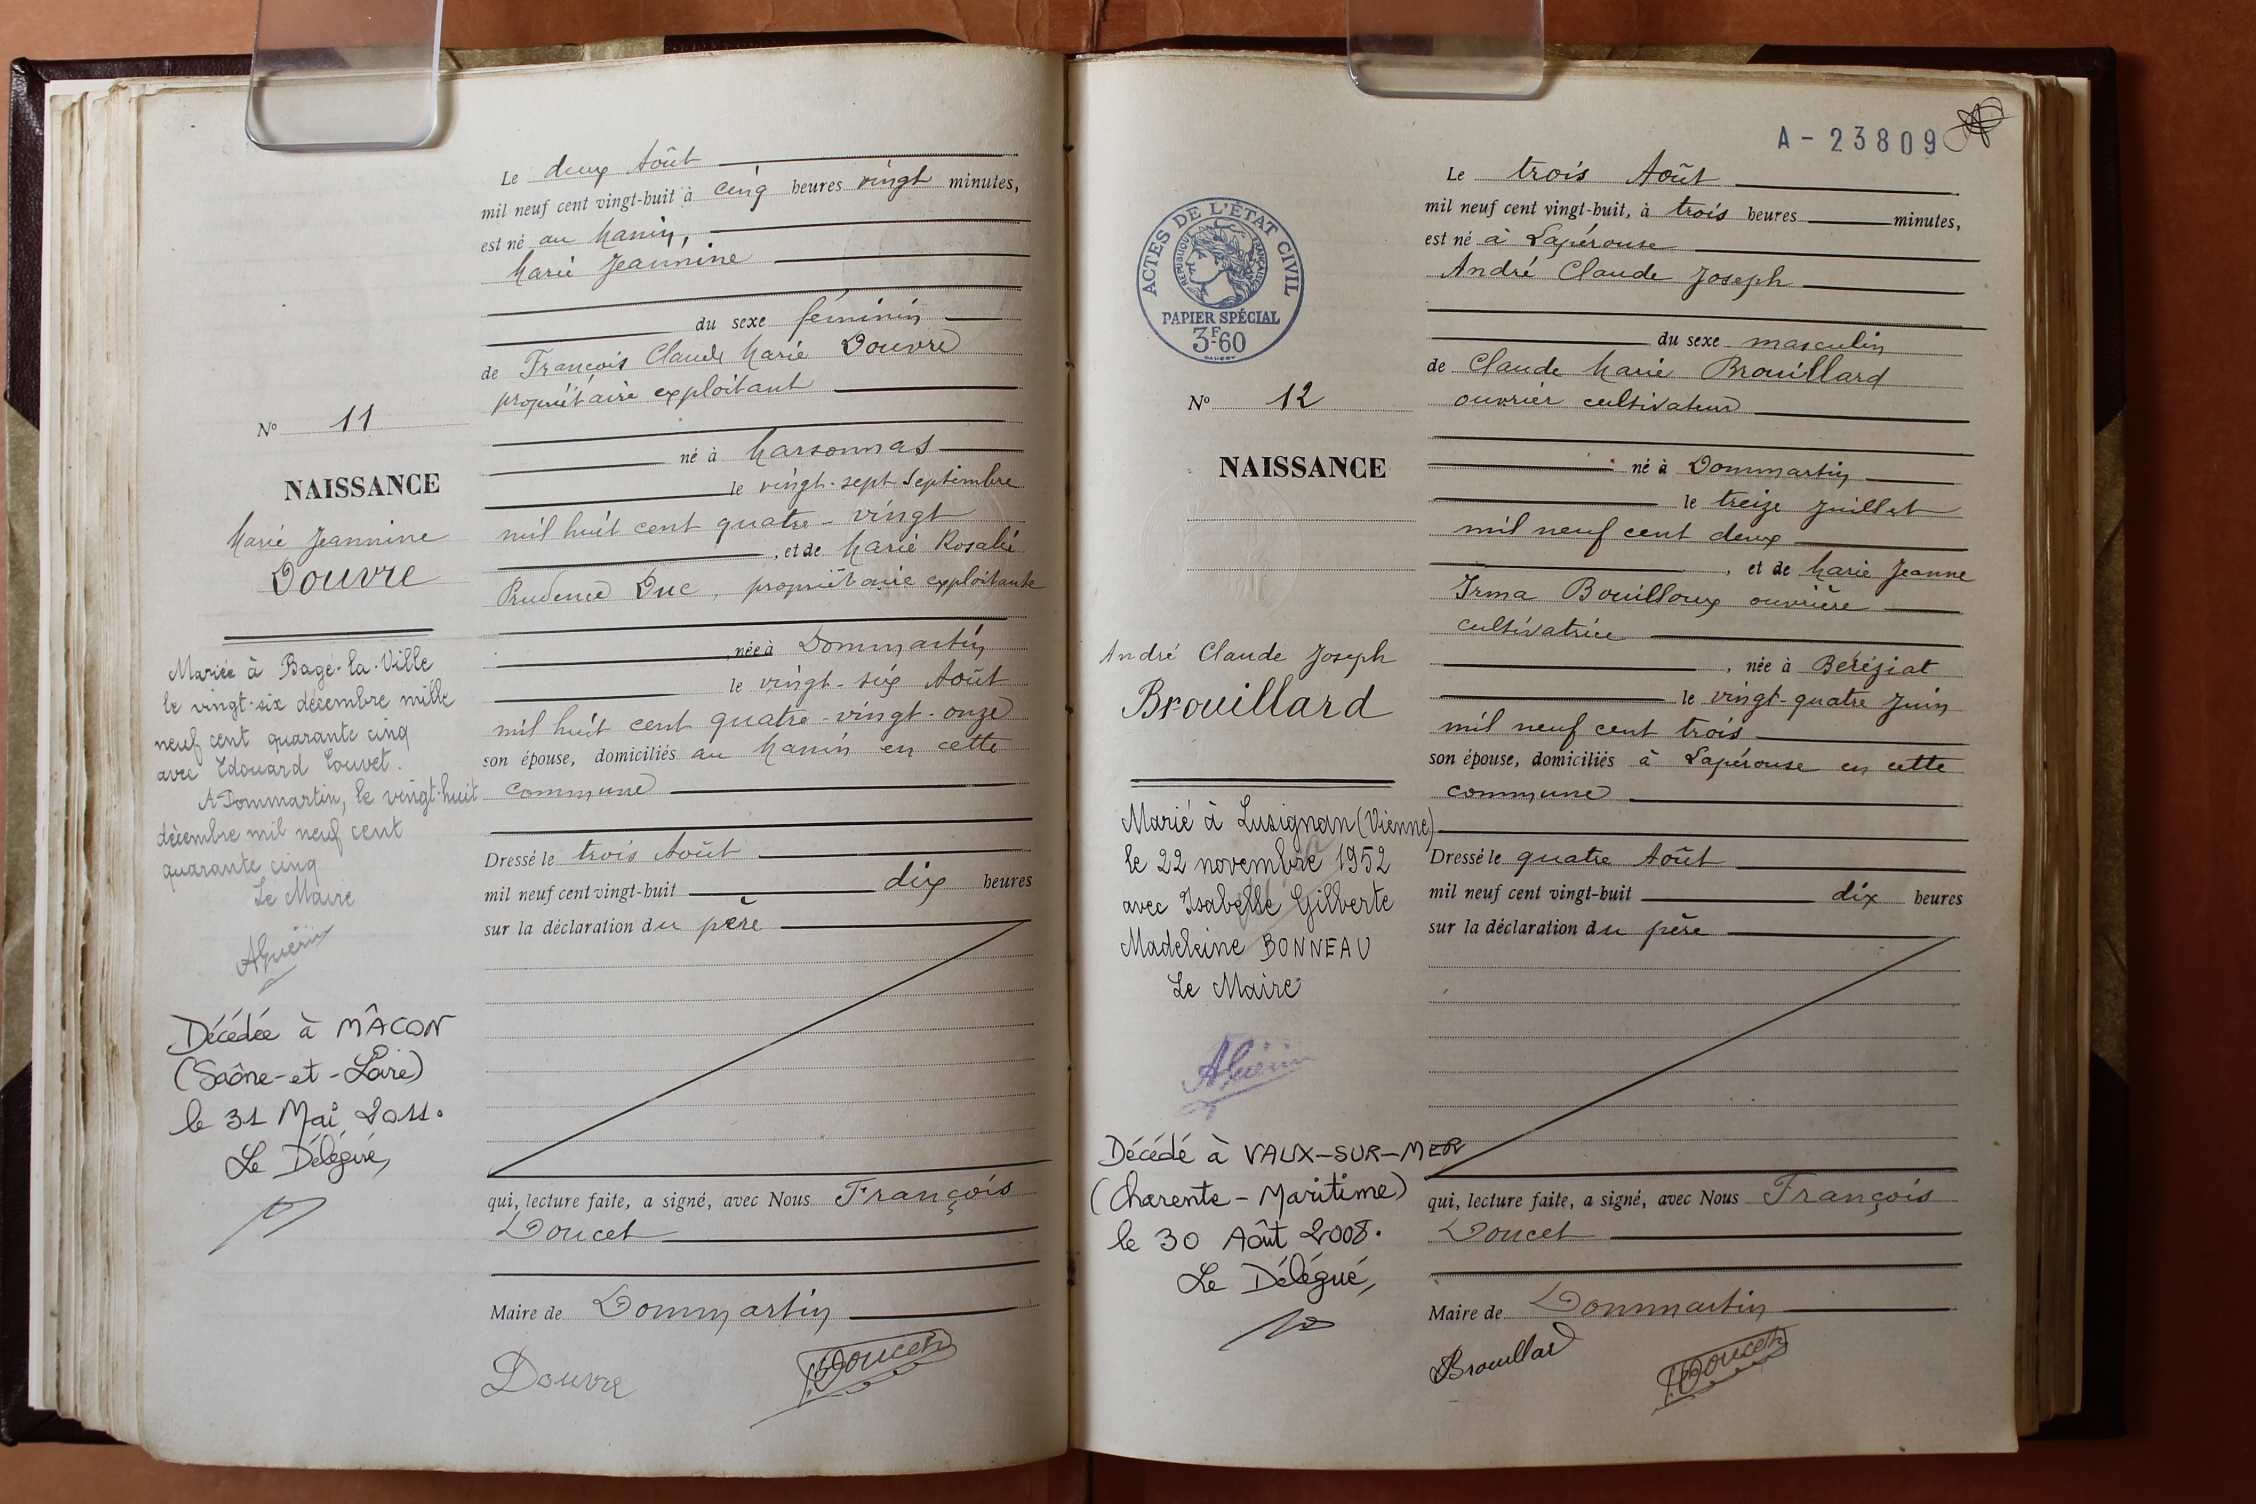 Le deux Août
mil neuf cent vingt-huit à cinq heures vingt minutes,
est né au Manin,
Marie Jeannine
du sexe féminin
de François Claude Marie Douvre
propriétaire exploitant
né à Marsonnas
le vingt-sept Septembre
mil huit cent quatre-vingt
, et de Marie Rosalie
Prudence Duc, propriétaire exploitante
née à Dommartin
le vingt-six Août
mil huit cent quatre-vingt-onze
son épouse, domiciliés au Manin en cette
commune
Dressé le trois Août
mil neuf cent vingt-huit dix heures
sur la déclaration du père
qui, lecture faite, a signé, avec Nous François
Doucet
Maire de Dommartin
Douvre
Doucet
No 11
NAISSANCE
Marie Jeannine
Douvre
Mariée à Bagé-la-Ville
le vingt-six décembre mille
neuf cent quarante cinq
avec Edouard Louvet.
A Dommartin, le vingt-huit
décembre mil neuf cent
quarante cinq
Le Maire
AGuérin
Décédée à MÂCON
(Saône-et-Loire)
le 31 Mai 2011.
Le Délégué,
A-23809
ACTES DE L'ÉTAT CIVIL
RÉPUBLIQUE FRANÇAISE
PAPIER SPÉCIAL
3F60
Le trois Août
mil neuf cent vingt-huit, à trois heures minutes,
est né à Lapérouse
André Claude Joseph
du sexe masculin
de Claude Marie Brouillard
ouvrier cultivateur
né à Dommartin
le treize Juillet
mil neuf cent deux
, et de Marie Jeanne
Irma Bouilloux ouvrière
cultivatrice
, née à Béréziat
le vingt-quatre Juin
mil neuf cent trois
son épouse, domiciliés à Lapérouse en cette
commune
Dressé le quatre Août
mil neuf cent vingt-huit dix heures
sur la déclaration du père
qui, lecture faite, a signé, avec Nous François
Doucet
Maire de Dommartin
Brouillard
Doucet
No 12
NAISSANCE
André Claude Joseph
Brouillard
Marié à Lusignan (Vienne)
le 22 novembre 1952
avec Isabelle Gilberte
Madeleine BONNEAU
Le Maire
AGuérin
Décédé à VAUX-SUR-MER
(Charente-Maritime)
le 30 Août 2008.
Le Délégué,